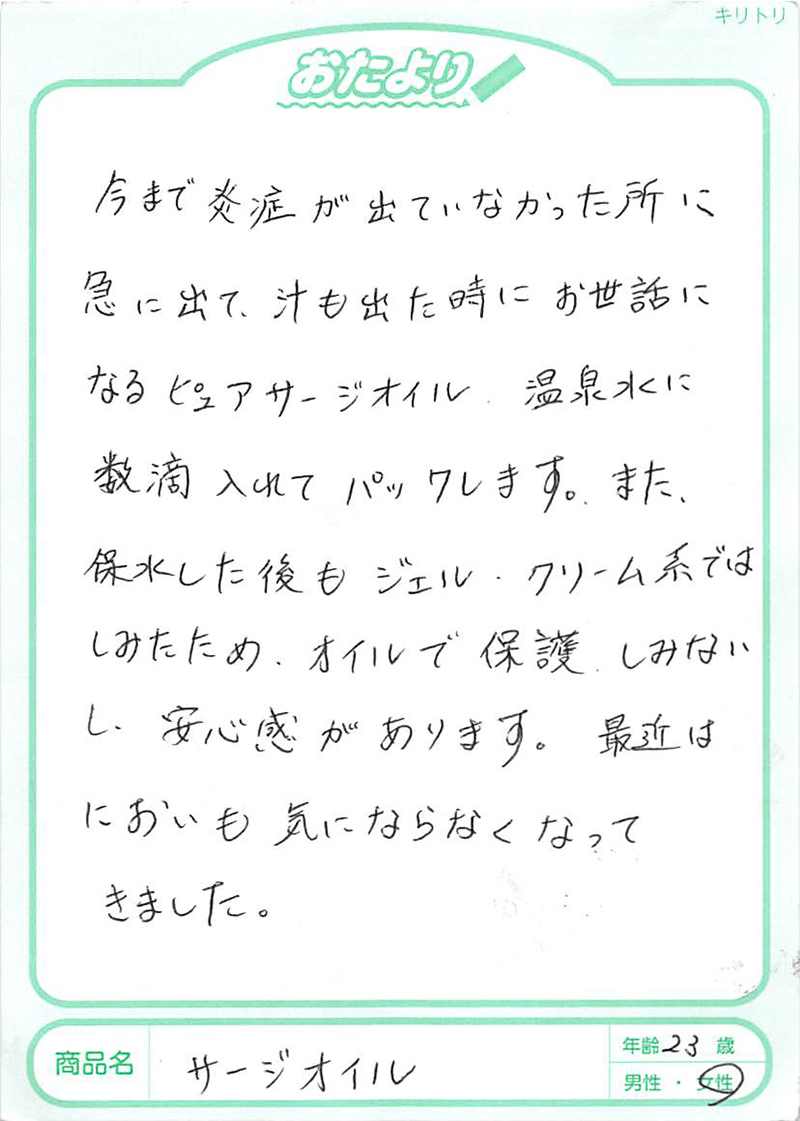 キリトリ
おたより
今まで炎症が出ていなかった所に
急に出て、汁も出た時にお世話に
なるピュアサージオイル、温泉水に
数滴入れてパックします。また、
保水した後もジェル・クリーム系では
しみたため、オイルで保護、しみない
し、安心感があります。最近は
においも気にならなくなって
きました。
商品名 サージオイル
年齢23歳
男性・女性